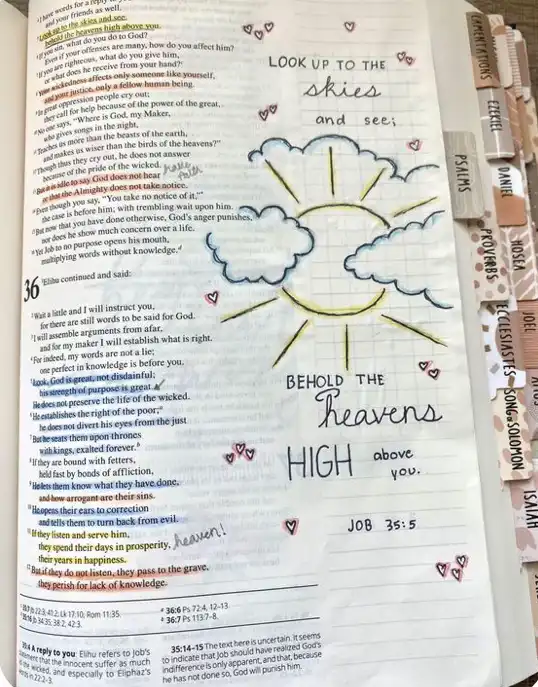 ⁴I have words for a reply to
and your friends as well.
⁵Look up to the skies and see;
behold the heavens high above you.
⁶If you sin, what do you do to God?
Even if your offenses are many, how do you affect him?
⁷If you are righteous, what do you give him,
or what does he receive from your hand?
⁸Your wickedness affects only someone like yourself,
and your justice, only a fellow human being.
⁹In great oppression people cry out;
they call for help because of the power of the great,
¹⁰No one says, “Where is God, my Maker,
who gives songs in the night,
¹¹Teaches us more than the beasts of the earth,
and makes us wiser than the birds of the heavens?”
¹²Though thus they cry out, he does not answer
because of the pride of the wicked.
have faith
¹³But it is idle to say God does not hear
or that the Almighty does not take notice.
¹⁴Even though you say, “You take no notice of it,”
the case is before him; with trembling wait upon him.
¹⁵But now that you have done otherwise, God’s anger punishes,
nor does he show much concern over a life.
¹⁶Yet Job to no purpose opens his mouth,
multiplying words without knowledge.
36 ¹Elihu continued and said:
²Wait a little and I will instruct you,
for there are still words to be said for God.
³I will assemble arguments from afar,
and for my maker I will establish what is right.
⁴For indeed, my words are not a lie;
one perfect in knowledge is before you.
⁵Look, God is great, not disdainful;
his strength of purpose is great.
He does not preserve the life of the wicked.
⁶He establishes the right of the poor;
he does not divert his eyes from the just
⁷But he seats them upon thrones
with kings, exalted forever.
⁸If they are bound with fetters,
held fast by bonds of affliction,
⁹He lets them know what they have done,
and how arrogant are their sins.
¹⁰He opens their ears to correction
and tells them to turn back from evil.
¹¹If they listen and serve him,
they spend their days in prosperity,
their years in happiness.
heaven!
¹²But if they do not listen, they pass to the grave,
they perish for lack of knowledge.
22:3; 41:2; Lk 17:10; Rom 11:35.
34:35; 38:2; 42:3.
36:6 Ps 72:4, 12-13.
36:7 Ps 113:7-8.
A reply to you: Elihu refers to Job’s
that the innocent suffer as much
the wicked, and especially to Eliphaz’s
in 22:2-3.
35:14–15 The text here is uncertain. It seems
to indicate that Job should have realized God’s
indifference is only apparent, and that, because
he has not done so, God will punish him.
LOOK UP TO THE
skies
and see;
BEHOLD THE
heavens
HIGH above
you.
JOB 35:5
LAMENTATIONS
EZEKIEL
PSALMS
DANIEL
PROVERBS
HOSEA
ECCLESIASTES
JOEL
SONG OF SOLOMON
AMOS
ISAIAH